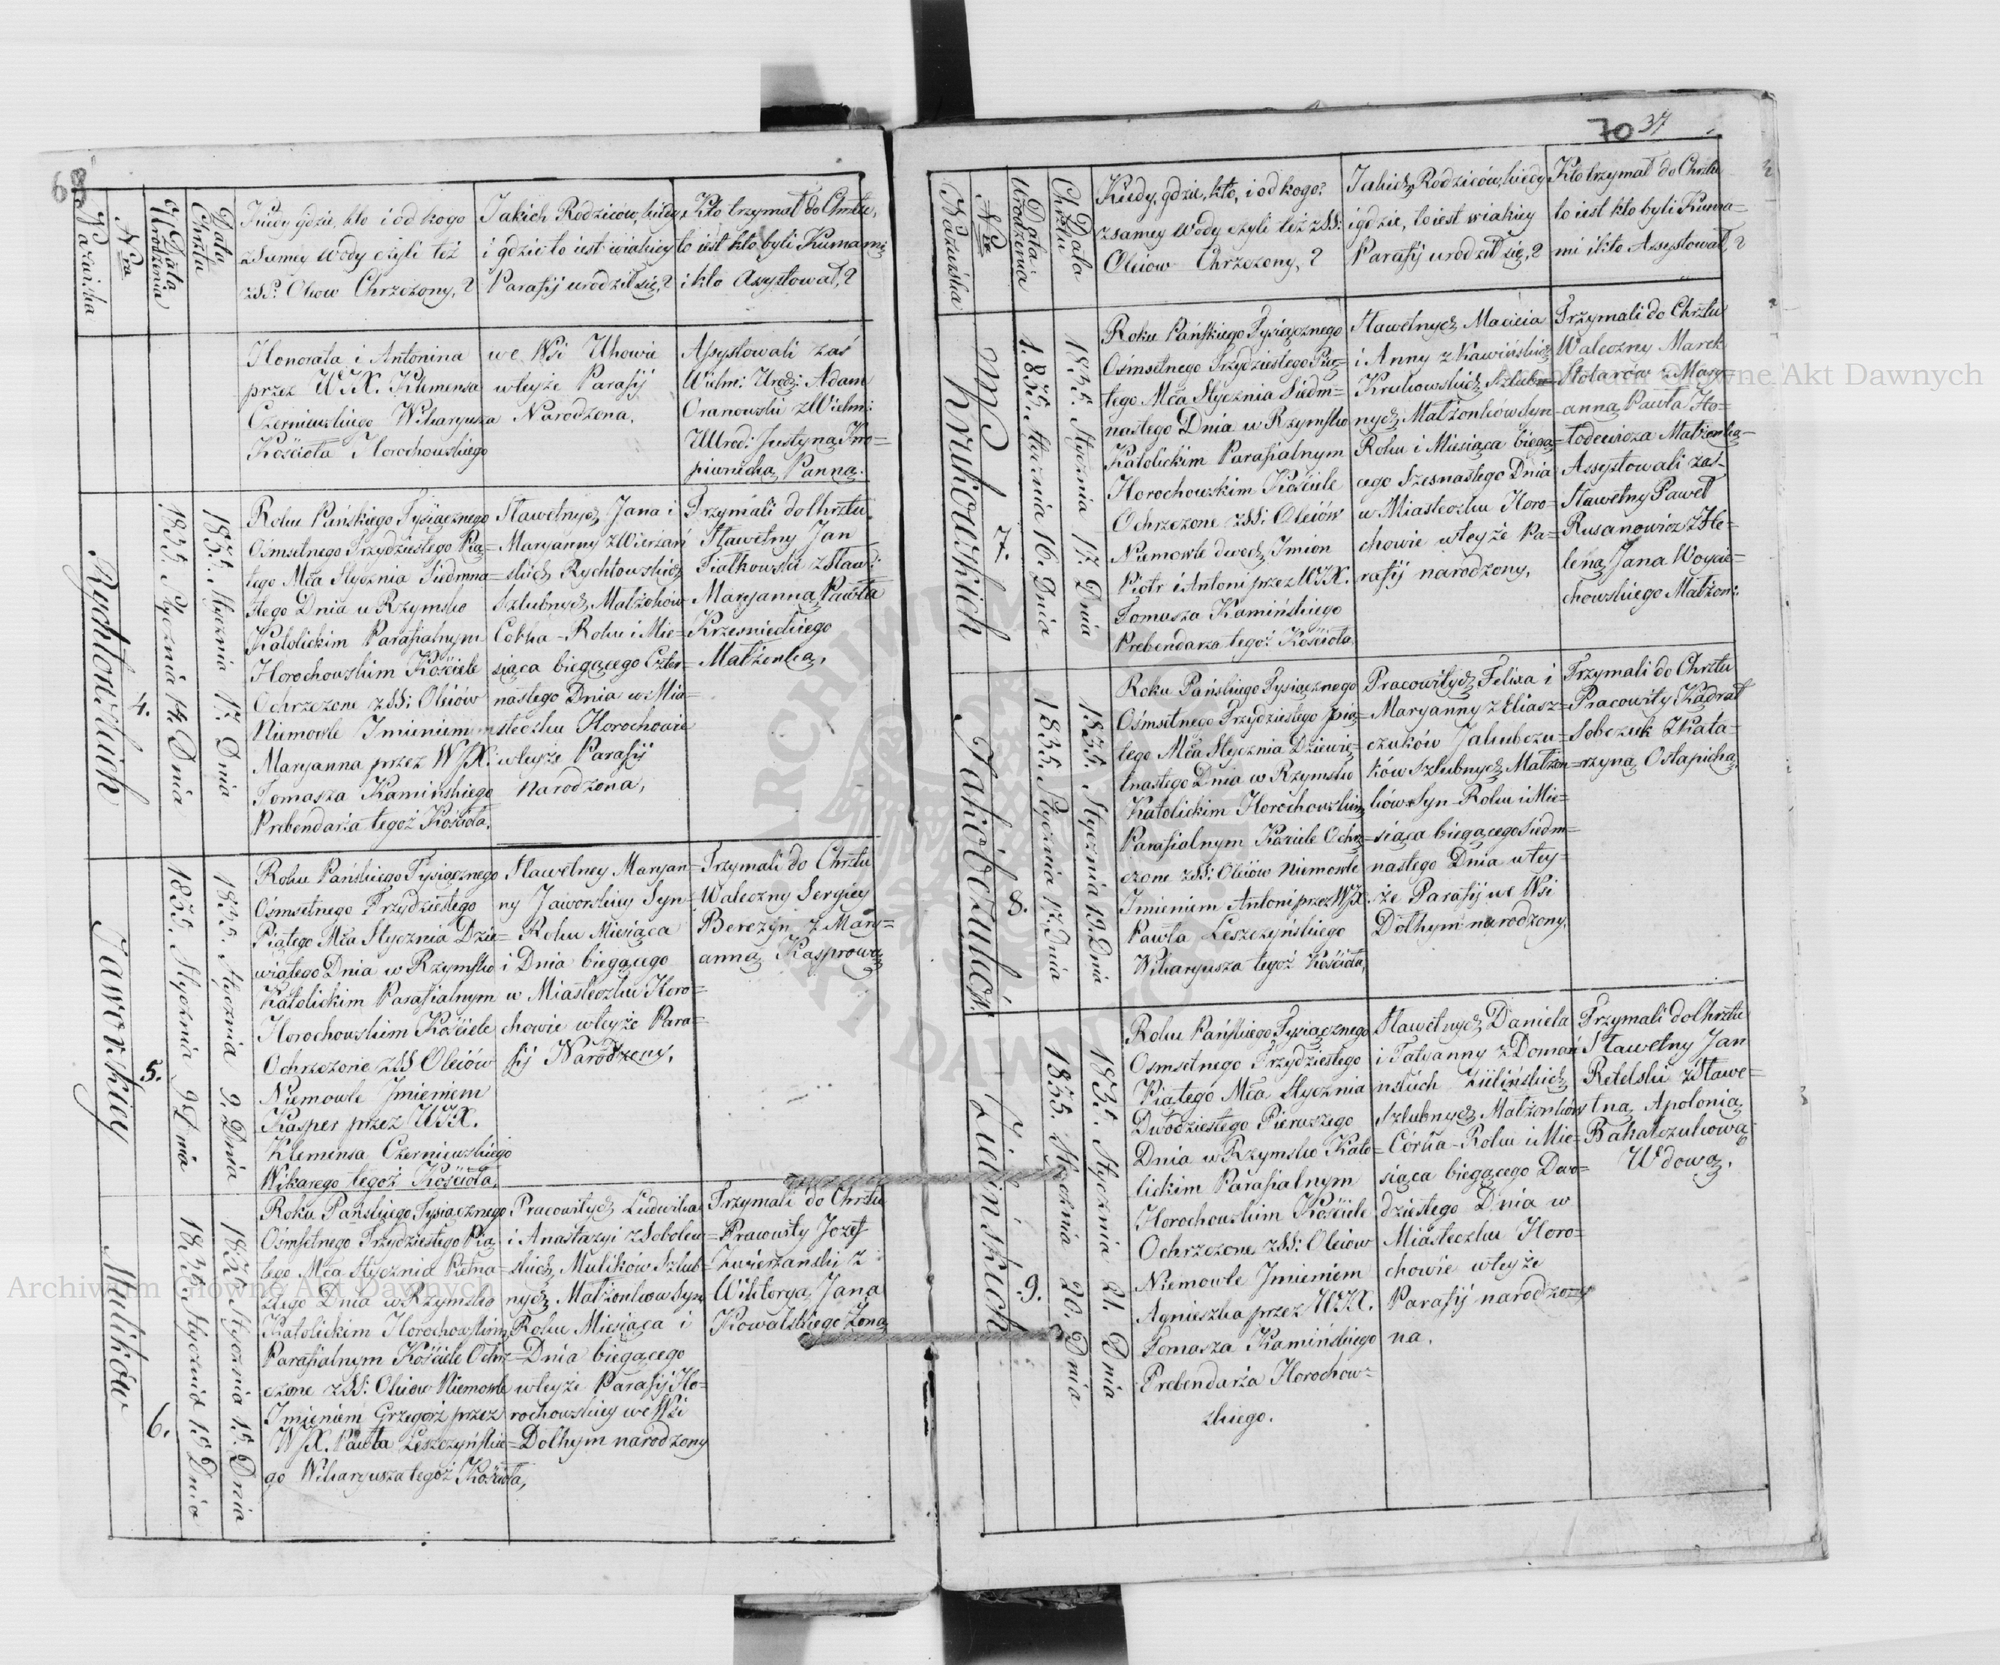 68
Nazwiska
Nra
Data Urodzenia
Data Chrztu
Kiedy gdzie, kto i od kogo
z Samey Wody czyli też
z SS: Oleiow Chrzczony, ?
Jakich Rodziców, kiedy
i gdzie to iest wiakiey
Parafij urodził się, ?
Kto trzymał do Chrztu,
to iest kto byli Kumami
i kto Asystował, ?
Honorata i Antonina
przez WJX. Klemensa
Czerniewskiego Wikaryusza
Kościoła Horochowskiego
we Wsi Uhowie
wteyże Parafij
Narodzona.
Assystowali zaś
Wielm: Urodz: Adam
Oranowski z Wielm:
Urod: Justyną Kro-
piwnicką Panną.
Rychtowskich
4.
1835. Stycznia 14. Dnia
1835. Stycznia 17. Dnia
Roku Pańskiego Tysiącznego
Ośmsetnego Trzydziestego Pią-
tego Mca Stycznia Siedmna-
stego Dnia w Rzymsko
Katolickim Parafialnym
Horochowskim Kościele
Ochrzczone z SS: Oleiów
Niemowle Imieniem
Maryanna przez WJX:
Tomasza Kamińskiego
Prebendarza tegoż Kościoła.
Sławetnych Jana i
Maryanny z Wierzań
skich Rychtowskich
Szlubnych Małżonków
Córka - Roku i Mie-
siąca biegącego Czter-
nastego Dnia w Mia-
steczku Horochowie
wteyże Parafij
Narodzona,
Trzymali do Chrztu
Sławetny Jan
Fiałkowski z Sław:
Maryanną Pawła
Krzesnieckiego
Małżonką,
Jaworskiey
5.
1835. Stycznia 9 Dnia
1835. Stycznia 9. Dnia
Roku Pańskiego Tysiącznego
Ośmsetnego Trzydziestego
Piątego Mca Stycznia Dzie-
wiątego Dnia w Rzymsko
Katolickim Parafialnym
Horochowskim Kościele
Ochrzczone z SS Oleiów
Niemowle Jmieniem
Kasper przez WJX.
Kleminsa Czerniewskiego
Wikarego tegoż Kościoła,
Sławetney Maryan-
ny Jaworskiey Syn
Roku Miesiąca
i Dnia biegącego
w Miasteczku Horo-
chowie wteyże Para-
fij Narodzony,
Trzymali do Chrztu
Waleczny Sergiey
Berezyn z Mary-
anną Kasprową
Mulików
6.
1835 Stycznia 15 Dnia
1835 Stycznia 15. Dnia
Roku Pańskiego Tysiącznego
Ośmsetnego Trzydziestego Pią
tego Mca Stycznia Pietna-
stego Dnia w Rzymsko
Katolickim Horochowskim
Parafialnym Kościele Ochrz-
czone z SS: Oleiow Niemowle
Imieniem Grzegorz przez
WJX. Pawła Leszczyńskie-
go Wikaryusza tegoż Kościoła,
Pracowitych Ludwika
i Anastazyi z Sobolew-
skich Mulików Szlub-
nych Małżonkow Syn
Roku Miesiąca i
Dnia biegącego
wteyże Parafij Ho-
rochowskiey we Wsi
Dołhym narodzony
Trzymali do Chrztu
Pracowity Jozef
Zwierzanski z
Wiktoryą Jana
Kowalskiego Żoną
70 37
Nazwiska
Nra
Data Urodzenia
Data Chrztu
Kiedy, gdzie, kto, i od kogo?
z samey Wody czyli też z SS:
Oleiow Chrzczony, ?
Jakich Rodziców, kiedy
i gdzie, to iest wiakiey
Parafij urodził się, ?
Kto trzymał do Chrztu
to iest kto byli Kuma-
mi i kto Assystował ?
Krukowskich
7.
1835. Stycznia 16. Dnia
1835. Stycznia 17. Dnia
Roku Pańskiego Tysiącznego
Ośmsetnego Trzydziestego Pią-
tego Mca Stycznia Siedm-
nastego Dnia w Rzymsko
Katolickim Parafialnym
Horochowskim Kościele
Ochrzczone z SS: Oleiów
Niemowle dwoch Jmion
Piotr i Antoni przez WJX.
Tomasza Kamińskiego
Prebendarza tegoż Kościoła
Sławetnych Macieia
i Anny z Kawińskich
Krukowskich Szlub-
nych Małżonków Syn
Roku i Miesiąca biegą-
cego Szesnastego Dnia
w Miasteczku Horo-
chowie wteyże Pa-
rafij narodzony,
Trzymali do Chrztu
Waleczny Marek
Stolarów z Mary-
anną Pawła Ho-
łodewicza Małżonką
Assystowali zaś
Sławetny Paweł
Rusanowicz z He-
leną Jana Woycie-
chowskiego Małżon:
Jakóbczuków
8.
1835 Stycznia 17. Dnia
1835. Stycznia 19. Dnia
Roku Pańskiego Tysiącznego
Ośmsetnego Trzydziestego pią-
tego Mca Stycznia Dziewię-
tnastego Dnia w Rzymsko
Katolickim Horochowskim
Parafialnym Kościele Ochrz-
czone z SS: Oleiów Niemowle
Imieniem Antoni przez WJX
Pawła Leszczyńskiego
Wikaryusza tegoż Kościoła,
Pracowitych Felixa i
Maryanny z Eliasz-
czuków Jakubczu-
ków Szlubnych Małżon-
ków Syn - Roku i Mie-
siąca biegącego Siedm-
nastego Dnia w tey-
że Parafij we Wsi
Dołhym narodzony,
Trzymali do Chrztu
Pracowity Kądrat
Sobczuk z Kata-
rzyną Ostapichą,
Zielińskich
9.
1835. Stycznia 20. Dnia
1835. Stycznia 21. Dnia
Roku Pańskiego Tysiącznego
Osmsetnego Trzydziestego
Piątego Mca Stycznia
Dwódziestego Pierwszego
Dnia w Rzymsko Kato-
lickim Parafialnym
Horochowskim Kościele
Ochrzczone z SS: Oleiow
Niemowle Jmieniem
Agnieszka przez WJX.
Tomasza Kamińskiego
Prebendarza Horochow-
skiego.
Sławetnych Daniela
i Tatyanny z Domań
nskich Zielińskich
Szlubnych Małżonków
Córka - Roku i Mie-
siąca biegącego Dwó-
dziestego Dnia w
Miasteczku Horo-
chowie wteyże
Parafij narodzo-
na.
Trzymali do Chrztu
Sławetny Jan
Retelski z Sławe-
tną Apolonią
Bakałczukową
Wdową.
Archiwum Główne Akt Dawnych
Archiwum Główne Akt Dawnych